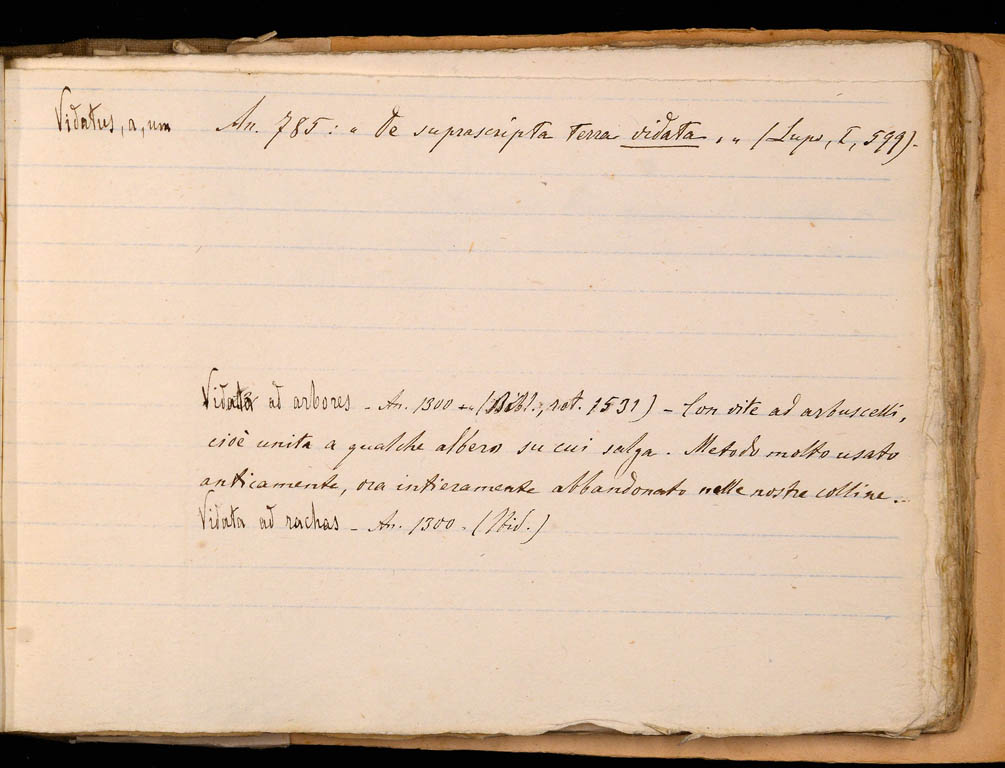 Vidatus, a, um An. 785: " De suprascripta terra vidata. " (Lup., I, 599).
Vidata ad arbores - An. 1300 - (Bibl., rot. 1531) - Con vite ad arbuscelli,
cioè unita a qualche albero su cui salga. Metodo molto usato
anticamente, ora intieramente abbandonato nelle nostre colline. -
Vidata ad rachas - An. 1300 - (Ibid.)